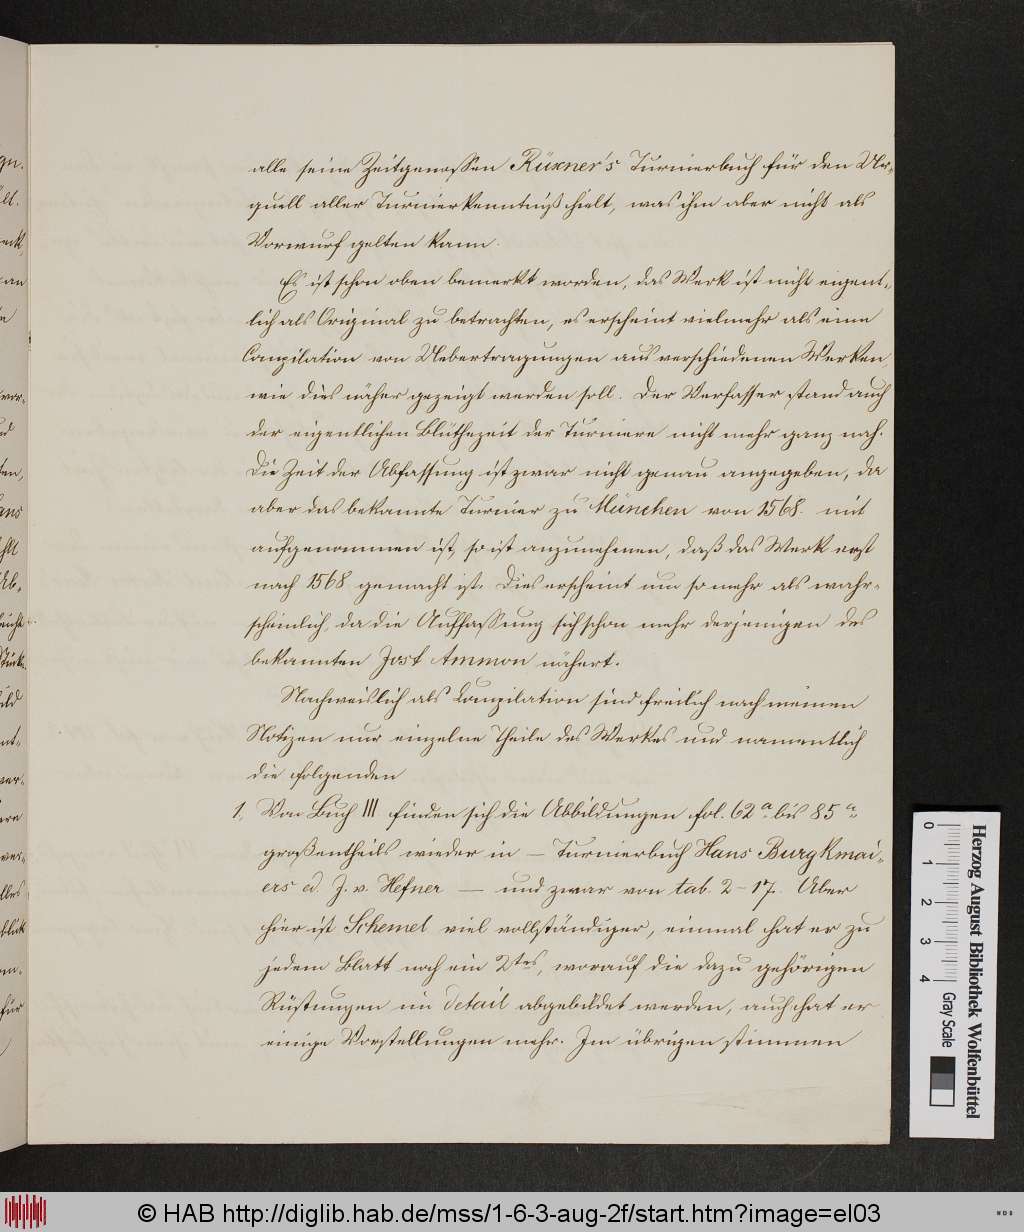 alle seine Zeitgenossen Rüxner's Turnierbuch für den Ur-
quell aller Turnierkenntniß hielt, was ihm aber nicht als
Vorwurf gelten kann.
Es ist schon oben bemerkt worden, das Werk ist nicht eigent-
lich als Original zu betrachten, es erscheint vielmehr als eine
Compilation von Uebertragungen aus verschiedenen Werken,
wie dies näher gezeigt werden soll. Der Verfasser stand auch
der eigentlichen Blüthezeit der Turniere nicht mehr ganz nah.
Die Zeit der Abfassung ist zwar nicht genau angegeben, da
aber das bekannte Turnier zu München von 1568. mit
aufgenommen ist, so ist anzunehmen, daß das Werk erst
nach 1568 gemacht ist. Dies erscheint um so mehr als wahr-
scheinlich, da die Auffassung sich schon mehr derjenigen des
bekannten Jost Ammon nähert.
Nachweislich als Compilation sind freilich nach meinen
Notizen nur einzelne Theile des Werkes und namentlich
die folgenden
1. Von Buch III finden sich die Abbildungen fol. 62a. bis 85a.
großentheils wieder in — Turnierbuch Hans Burgkmai-
ers ed. J. v. Hefner — und zwar von tab. 2–17. Aber
hier ist Schemel viel vollständiger, einmal hat er zu
jedem Blatt noch ein 2tes, worauf die dazu gehörigen
Rüstungen im Detail abgebildet werden, auch hat er
einige Vorstellungen mehr. Im übrigen stimmen
Herzog August Bibliothek Wolfenbüttel
0 1 2 3 4 Gray Scale
© HAB http://diglib.hab.de/mss/1-6-3-aug-2f/start.htm?image=el03